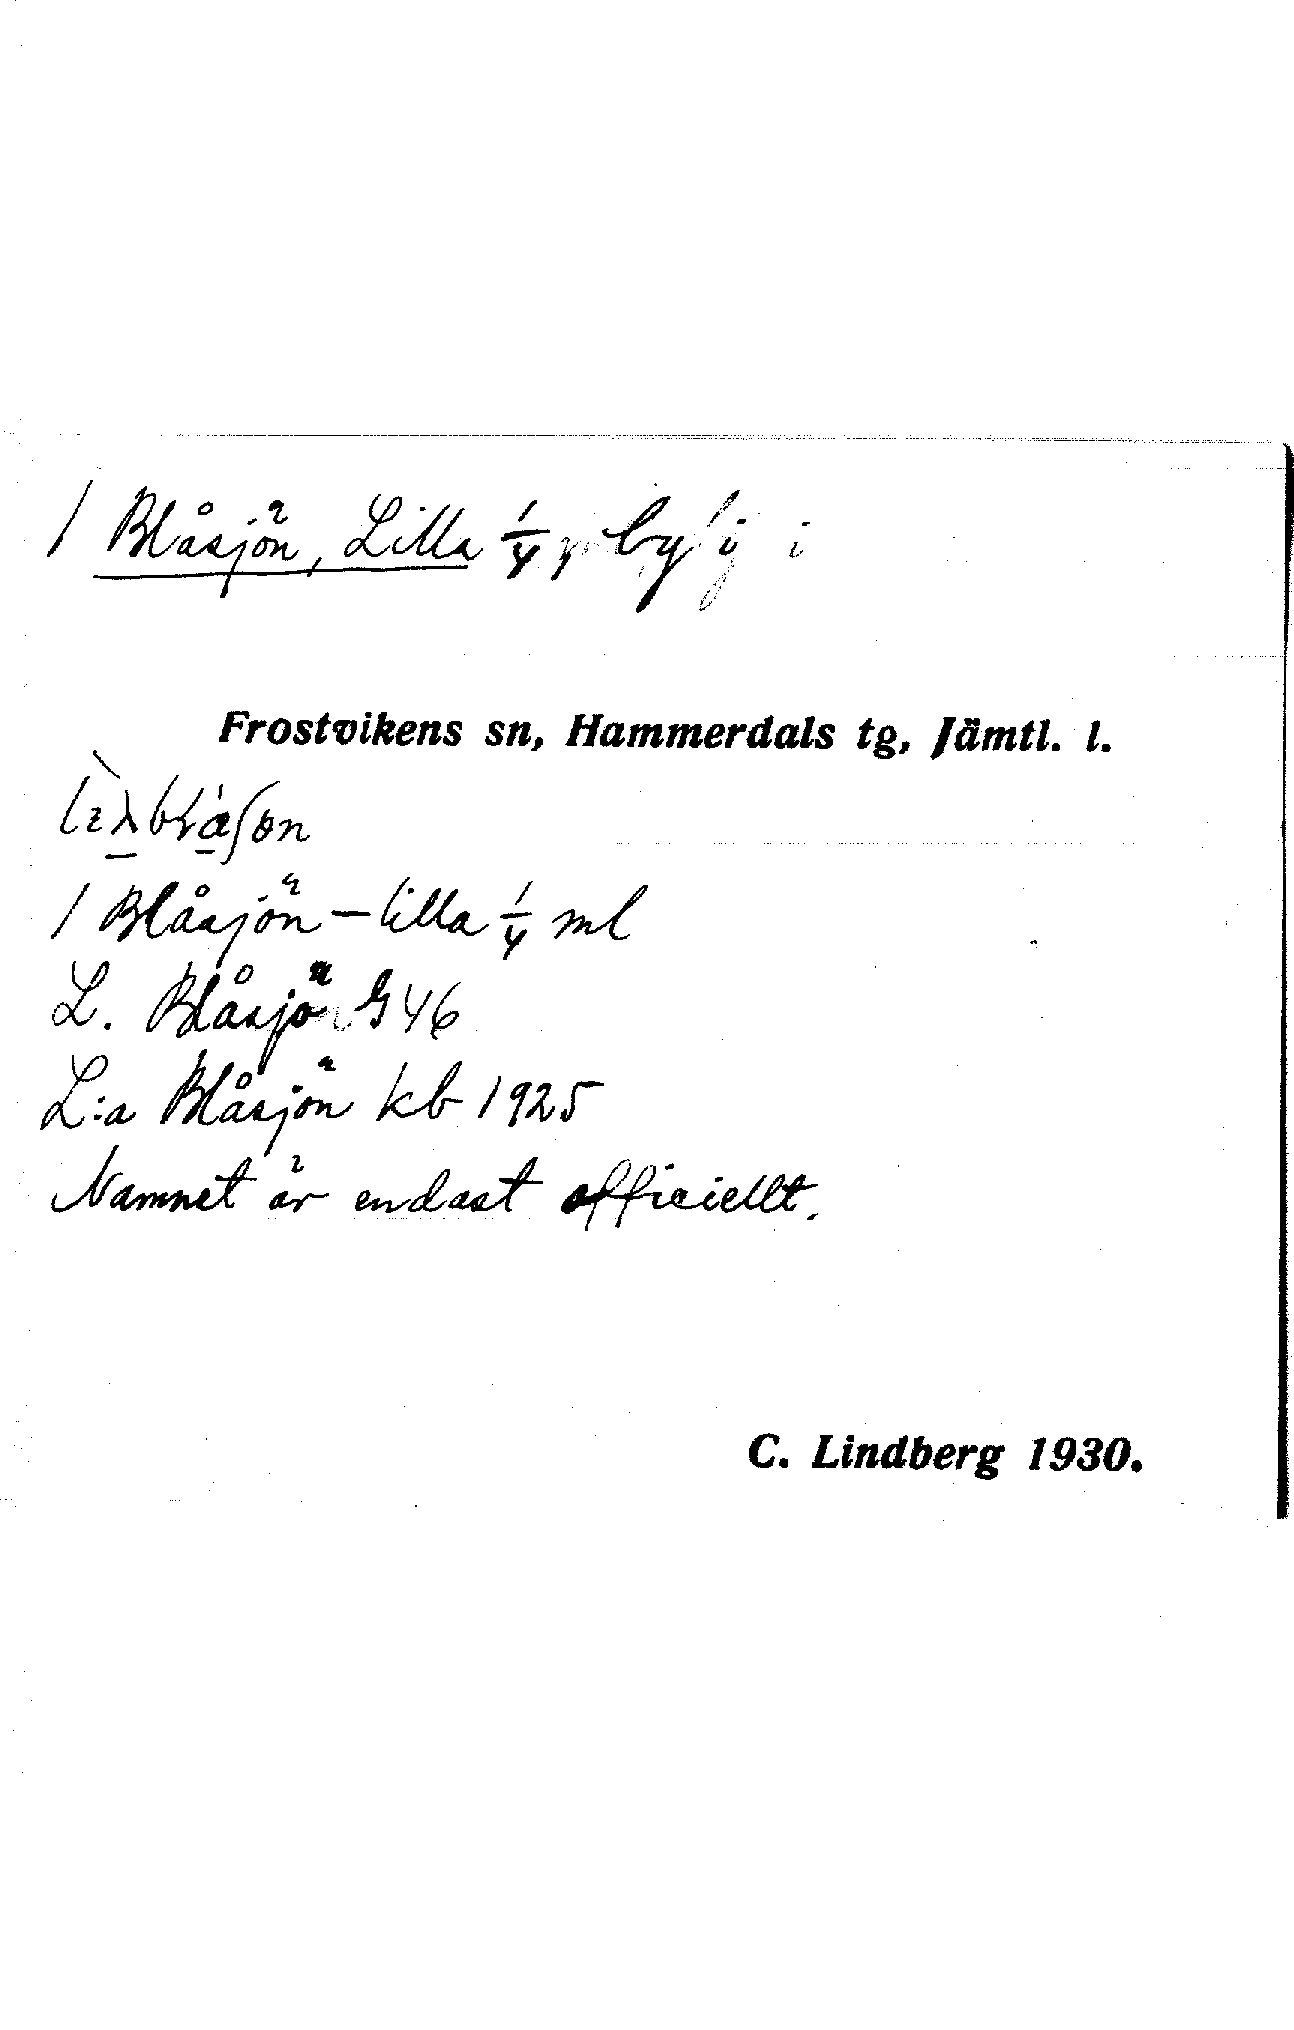 1 Blåsjön, Lilla 1/4 by i
Frostvikens sn, Hammerdals tg, Jämtl. l.
1 Blåsjön – lilla 1/4 ml
L. Blåsjön G 46
L:a Blåsjön kb 1925
Namnet är endast officiellt.
C. Lindberg 1930.